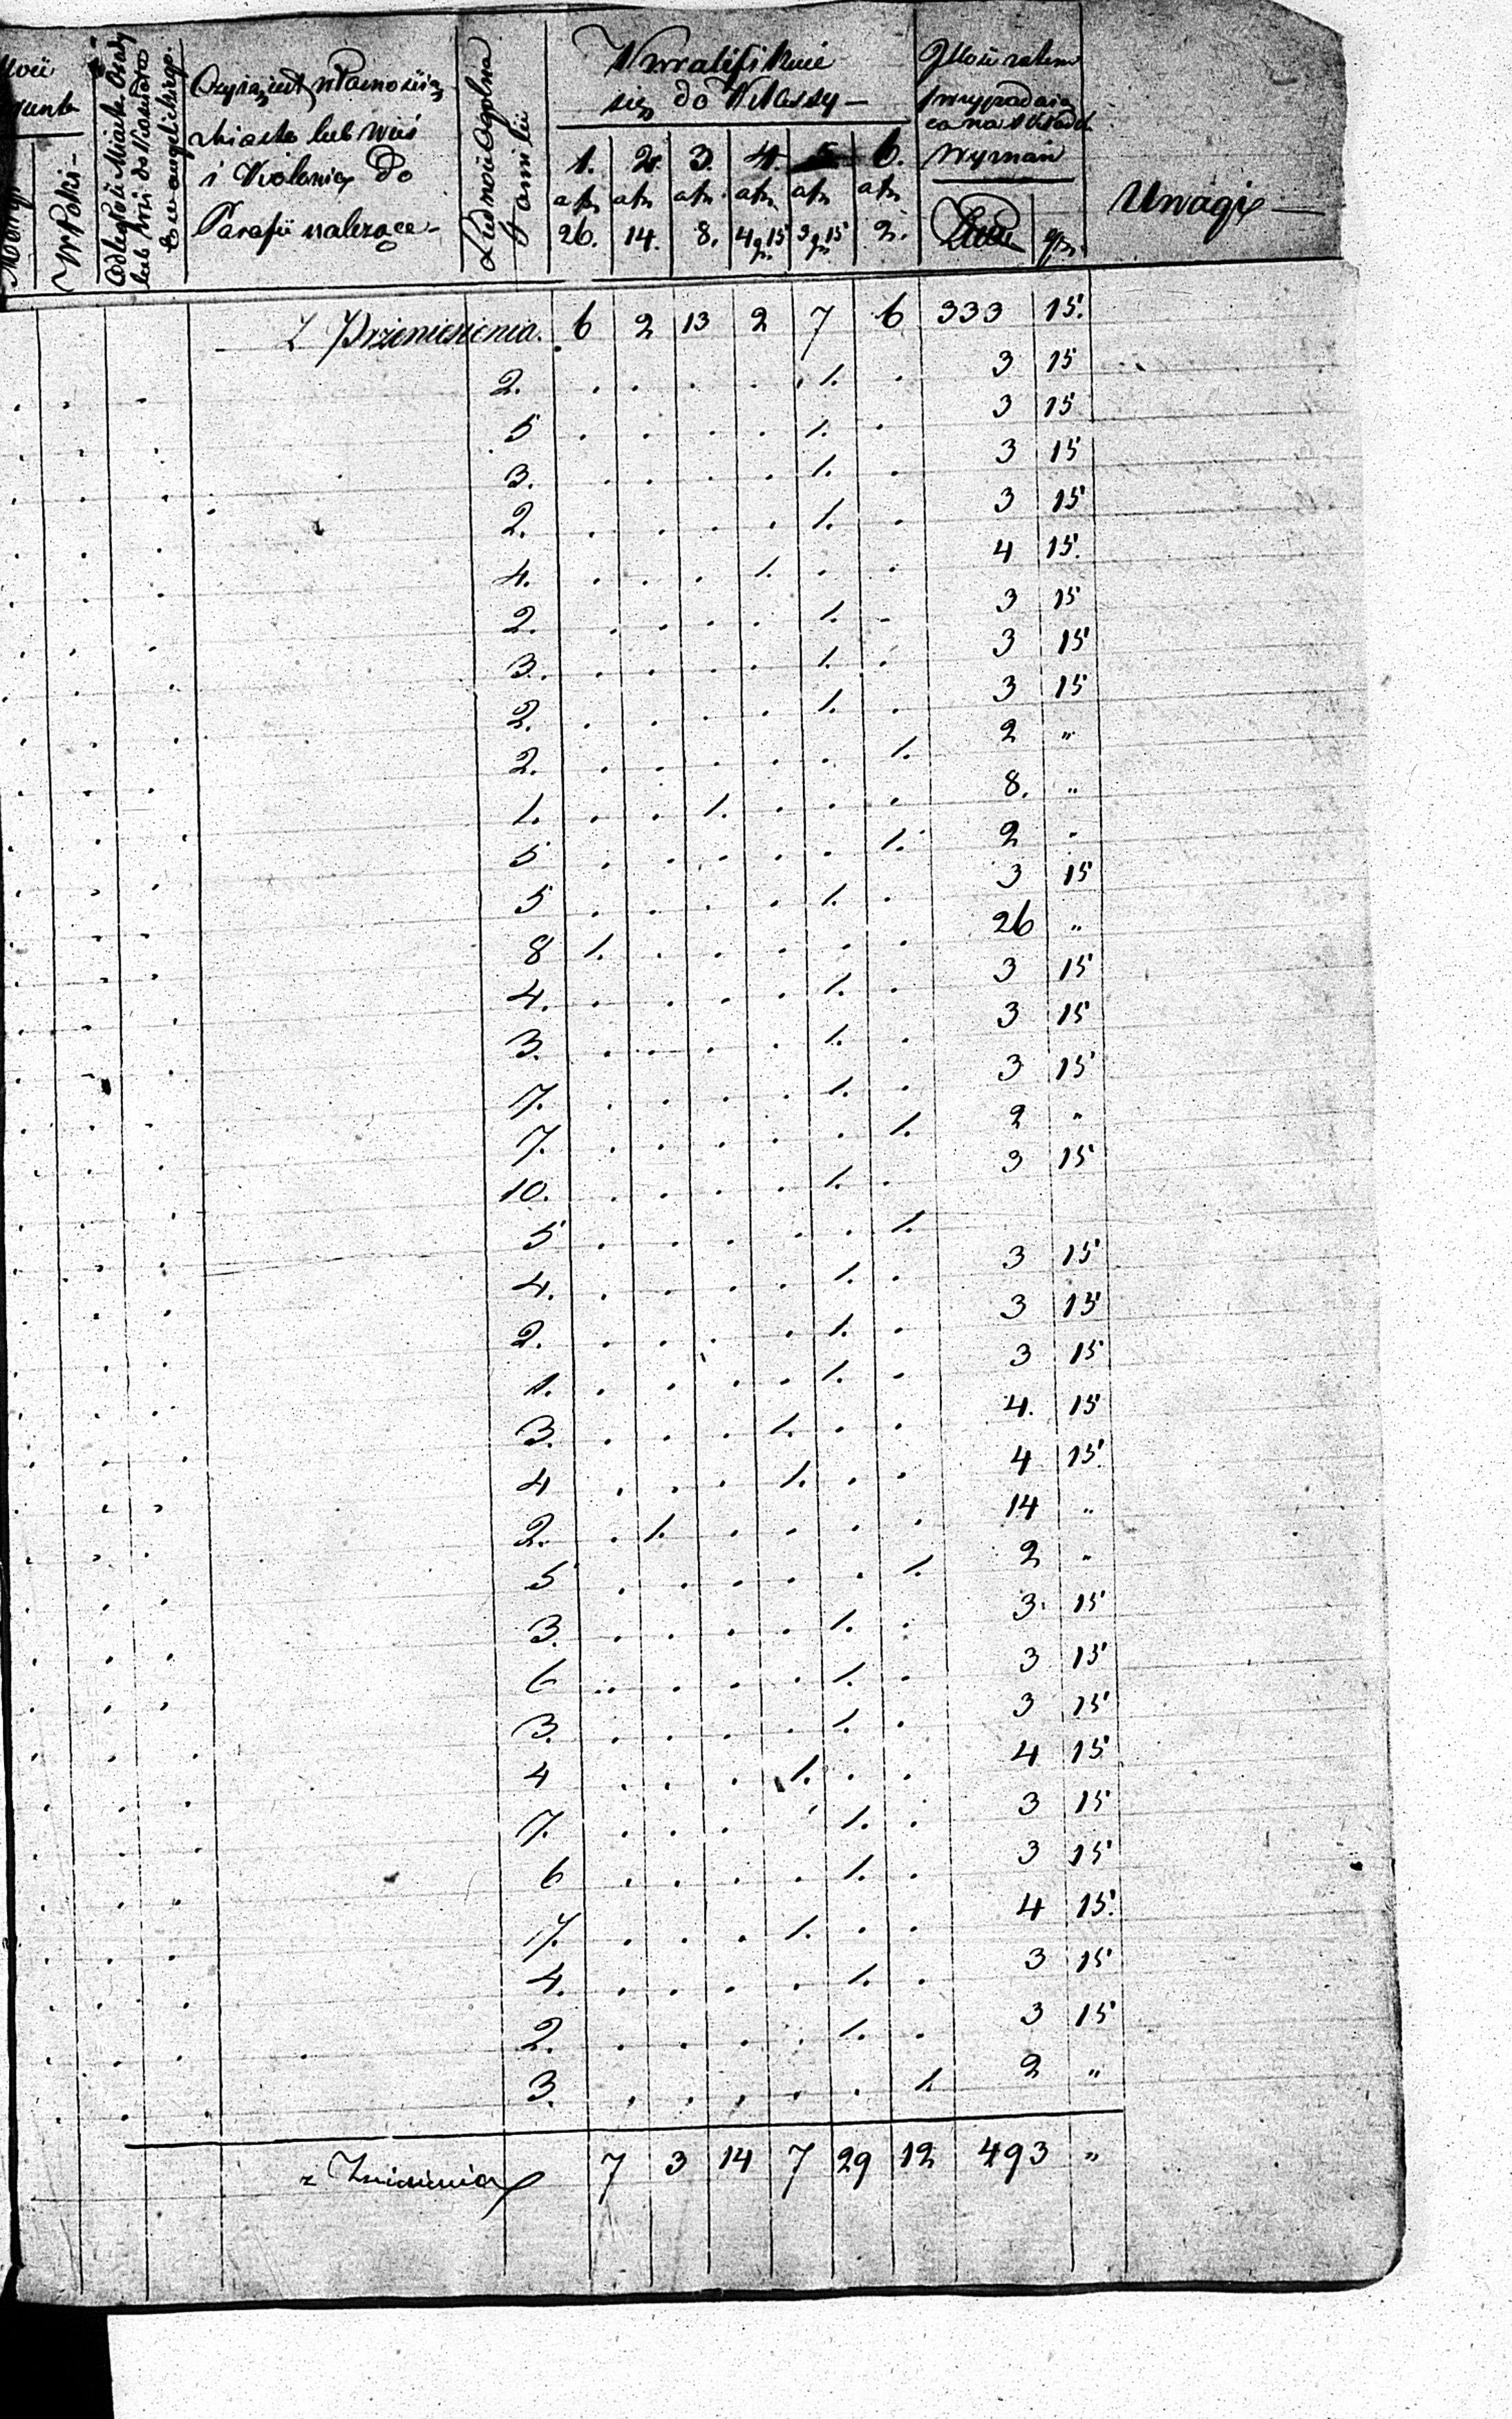 Czyja jest własnością
Miasto lub Wieś
i Kolonia do
Parafii należące
Ludność Ogólna
Familii
Kwalifikuie
się do Klassy —
1. 2. 3. 4. 5. 6.
a fn a fn a fn a fn a fn a fn
26. 14. 8. 4 g. 15 3 g. 15 2.
Wynosi
Uwagi —
Z Przeniesienia. 6 2 13 2 7 6 333 15.
2. . . . . 1. . 3 15
5 . . . . 1. . 3 15
3. . . . . 1. . 3 15
2. . . . . 1. . 3 15
4. . . . 1. . . 4 15.
2. . . . . 1. . 3 15
3. . . . . 1. . 3 15
2. . . . . 1. . 3 15
2. . . . . . 1. 2 "
1. . . 1. . . . 8. "
5 . . . . . 1. 2 "
5 . . . . 1. . 3 15
8 1. . . . . . 26 "
4. . . . . 1. . 3 15
3. . . . . 1. . 3 15
7. . . . . 1. . 3 15
7. . . . . . 1. 2 "
10. . . . . 1. . 3 15
5 . . . . . 1.
4. . . . . 1. . 3 15
2. . . . . 1. . 3 15
1. . . . . 1. . 3 15
3. . . . 1. . . 4. 15
4 . . . 1. . . 4 15.
2. . 1. . . . . 14 "
5 . . . . . 1. 2 "
3. . . . . 1. . 3. 15
6 . . . . 1. . 3 15
3. . . . . 1. . 3 15
4 . . . 1. . . 4 15
7. . . . . 1. . 3 15
6 . . . . 1. . 3 15
7. . . . 1. . . 4 15.
4. . . . . 1. . 3 15
2. . . . . 1. . 3 15
3. . . . . . 1. 2 "
7 3 14 7 29 12 493 "